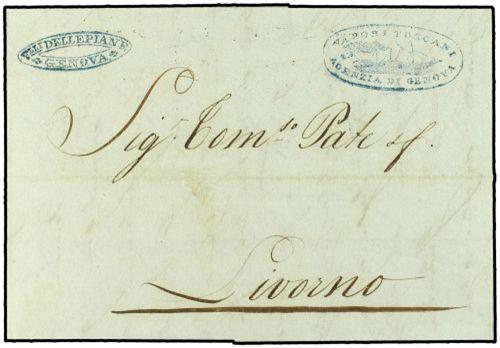 Flli DELLEPIANE
GENOVA
VAPORI TOSCANI
AGENZIA DI GENOVA
Sig. Tomso Pate & f.
Livorno